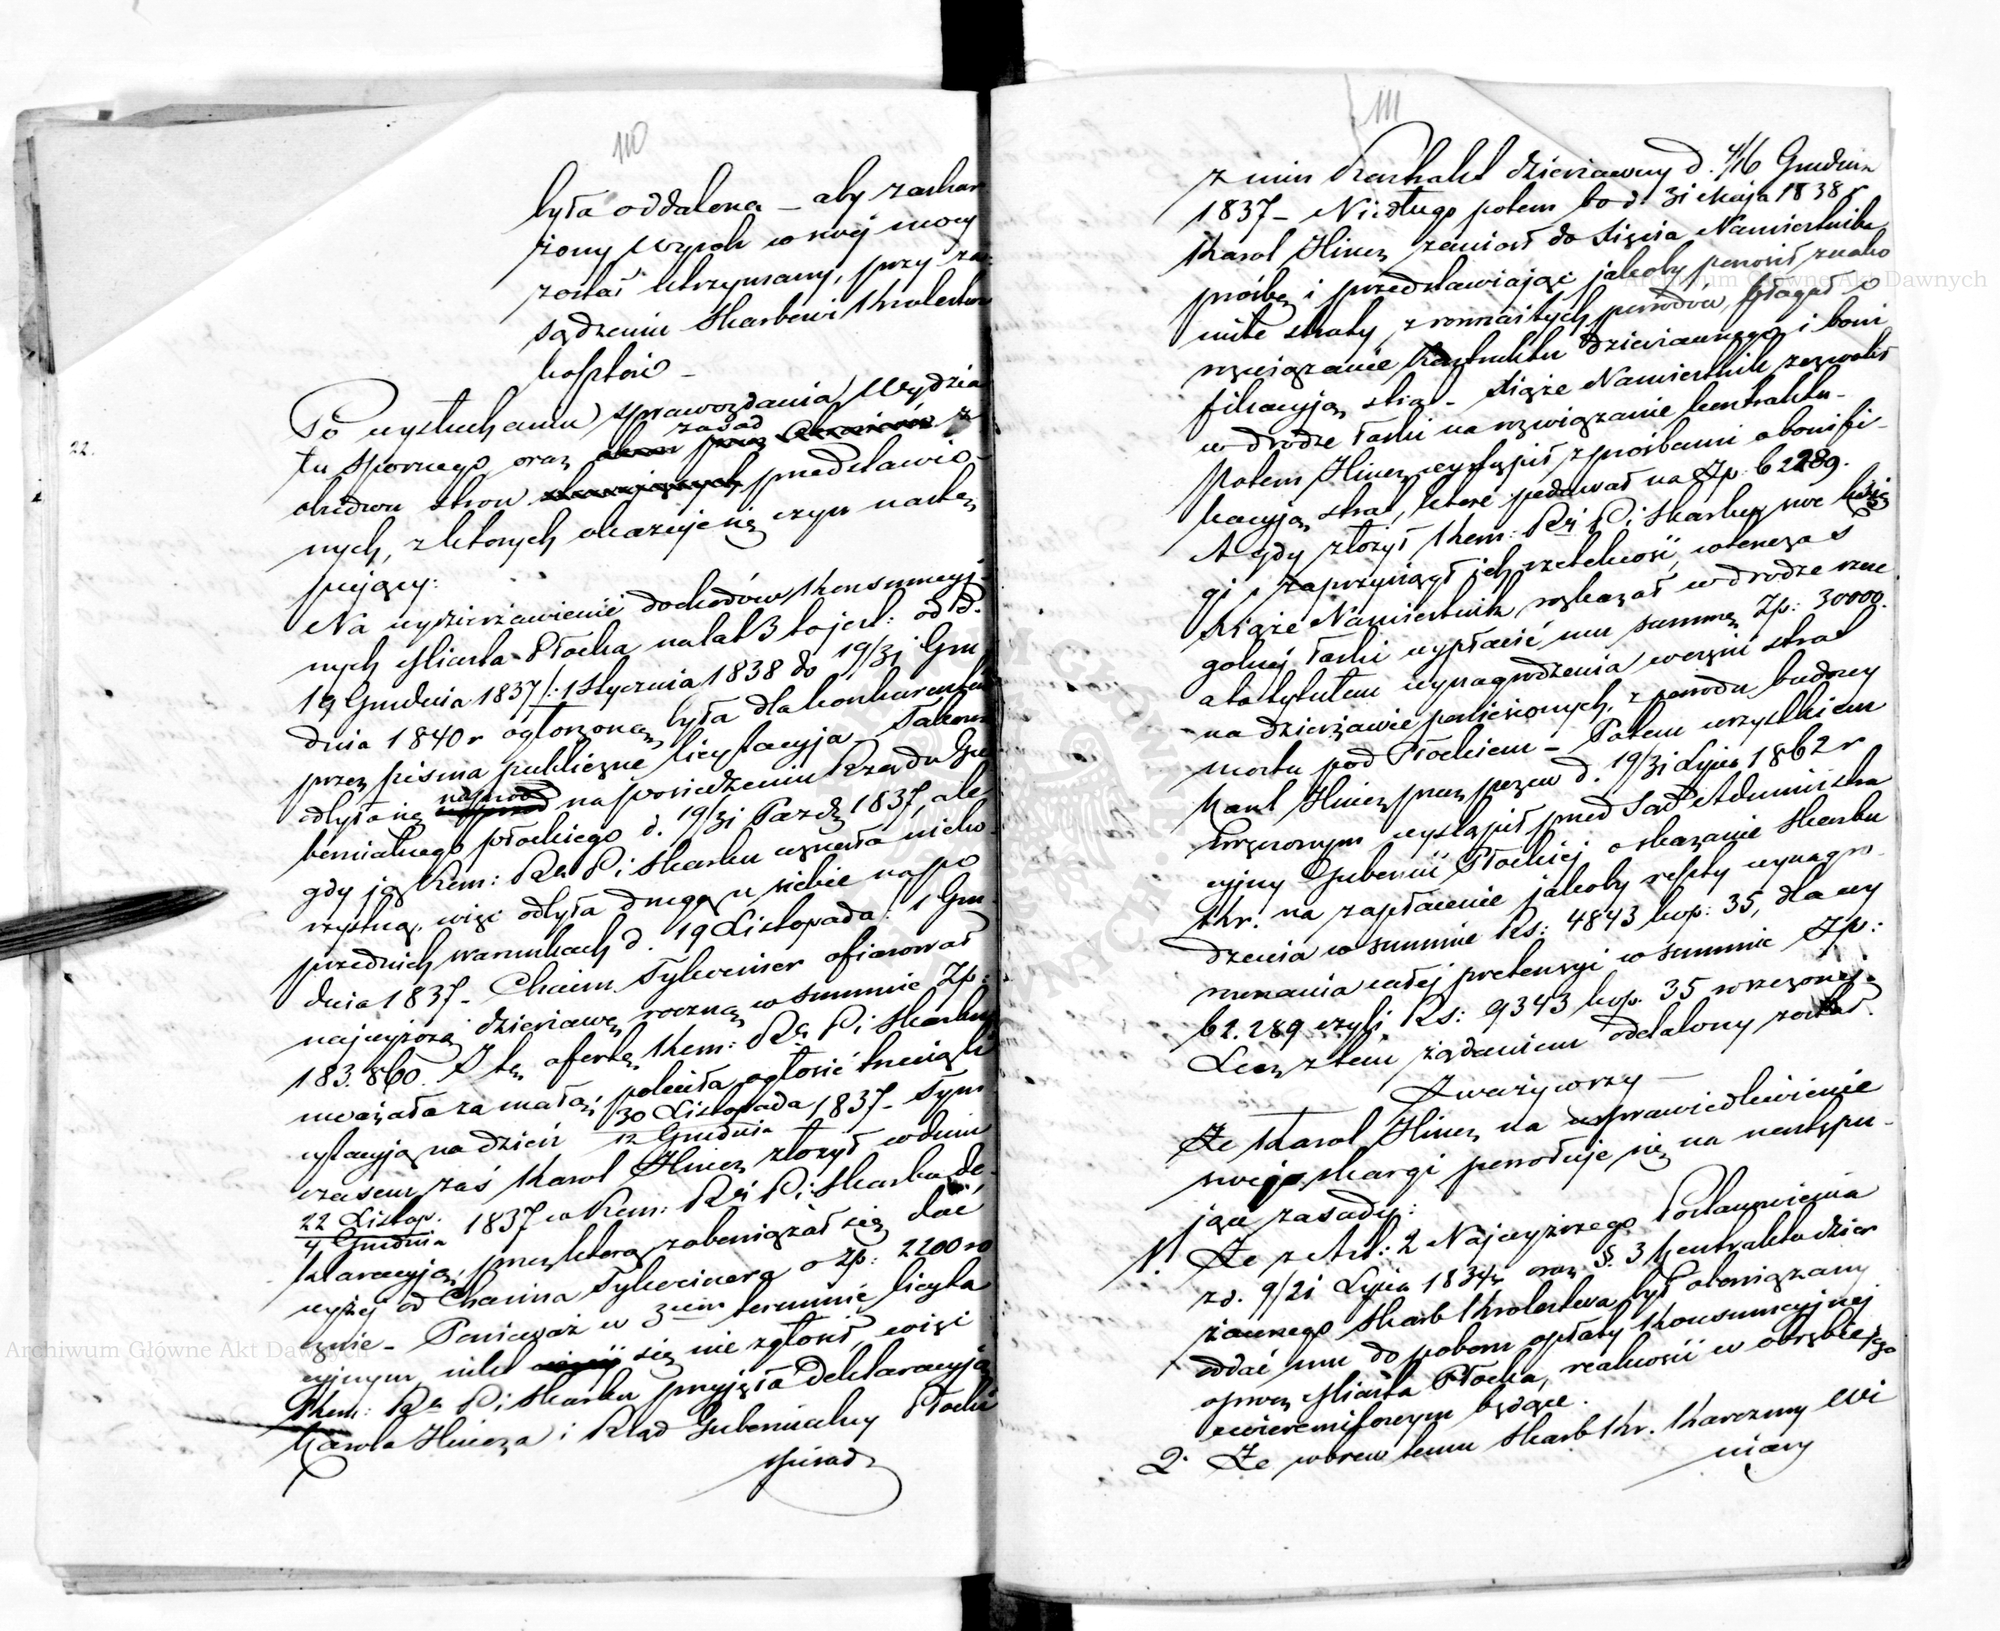 110
była oddalona – aby zaskar
żony Wyrok w swej mocy
został utrzymany, przy za-
sądzeniu Skarbowi Królestwa
kosztów –
22.
Po wysłuchaniu sprawozdania Wydzia
zasad
łu Spornego oraz przez z
obudwu stron przedstawio-
nych, z których okazuje się czyn nastę
pujący:
Na wydzierżawienie dochodów Konsumcyj-
nych Miasta Płocka na lat 3 to jest: od d.
19 Grudnia 1837/: 1 Stycznia 1838 do 19/31 Gru
dnia 1840 r ogłoszoną była dla konkurencyi
przez pisma publiczne licytacyja – Takowa
naprzód
odbyła się na posiedzeniu Rządu Gu
bernialnego płockiego d. 19/31 Paźdz 1837, ale
gdy ją Kom: Rz. P. i Skarbu uznała nieko-
rzystną, więc odbyła drugą u siebie na po
przednich warunkach d. 19 Listopada: 1 Gru-
dnia 1837 – Chaim Tykociner ofiarował
najwyższą dzierżawę roczną w summie Zp:
183.860. I tę ofertę Kom: Rz. P. i Skarbu
uważała za małą, i poleciła ogłosić trzecią li
cytacyją na dzień 30 Listopada 1837 – Tym
12 Grudnia
czasem zaś Karol Hincz złożył w dniu
22 Listop. 1837 w Kom: Rz. P. i Skarbu de-
4 Grudnia
klaracyją, przez którą zobowiązał się dać
wyżej od Chaima Tykocinera o Zp: 2200 ro
cznie – Ponieważ w 3cim terminie licyta
cyjnym nikt się nie zgłosił, więc
Kom: Rz. P. i Skarbu przyjęła Deklaracyją
Karola Hincza i Rząd Gubernialny Płocki
spisał
111
z nim Kontrakt dzierżawny d. 4/16 Grudnia
1837 – Niedługo potem bo d. 31 Maja 1838 r
Karol Hincz zaniósł do Xięcia Namiestnika
prośbę i przedstawiając jakoby ponosił znako
mite straty, z rozmaitych powodów, błagał o
rozwiązanie Kontraktu dzierżawnego i boni
fikacyją strat – Xiąże Namiestnik zezwolił
w drodze łaski na rozwiązanie kontraktu –
Potem Hincz wystąpił z prośbami o bonifi-
kacyją strat, które podawał na Zp: 62289.
A gdy złożył Kom: Rz. P. i Skarbu swe księ
gi i zaprzysiągł ich rzetelność, wtenczas
Xiąże Namiestnik rozkazał w drodze szcze
gólnej łaski wypłacić mu summę Zp: 30000.
a to tytułem wynagrodzenia wczęści strat
na dzierżawie poniesionych, z powodu budowy
mostu pod Płockiem – Potem wszystkiem
Karol Hincz przez pozew d. 19/31 Lipca 1862 r
wręczonym wystąpił przed Sąd Administra
cyjny Gubernii Płockiej o skazanie Skarbu
Kr. na zapłacenie jakoby reszty wynagro-
dzenia w summie Rs: 4843 kop: 35, dla wy
równania całej pretensyi w summie Zp:
62.289 czyli Rs: 9343 kop. 35 wrzeczonej.
Lecz z tem żądaniem oddalony został.
Zważywszy –
Że Karol Hincz na usprawiedliwienie
swej skargi powołuje się na następu-
jące zasady:
1. Że z Art: 2 Najwyższego Postanowienia
z d. 9/21 Lipca 1834 r oraz §. 3 Kontraktu dzier
żawnego Skarb Królestwa był obowiązany
oddać mu do poboru opłaty Konsumcyjnej
oprócz Miasta Płocka, realności w obrębie jego
ćwierćmilowym będące.
2. Że wbrew temu Skarb Kr. Karczmy Wi
niary
Archiwum Główne Akt Dawnych
Archiwum Główne Akt Dawnych
Archiwum Główne Akt Dawnych